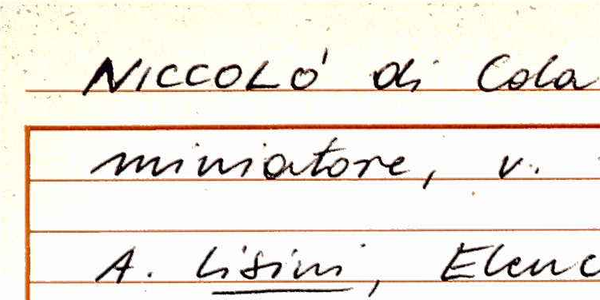 NICCOLÒ di Cola
miniatore, v.
A. Lisini, Elenc